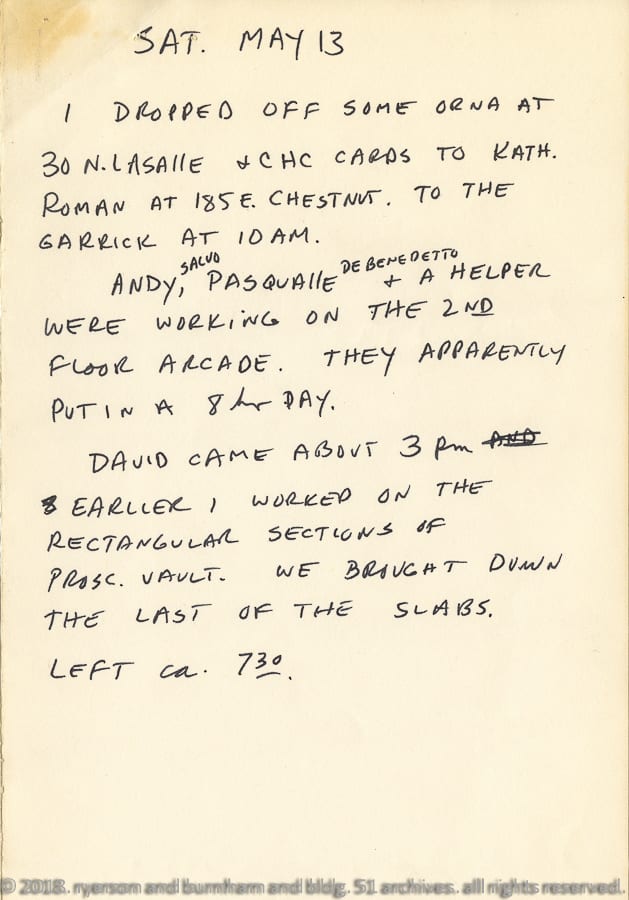 SAT. MAY 13
I DROPPED OFF SOME ORNA AT
30 N. LASAllE & CHC CARDS TO KATH.
ROMAN AT 185 E. CHESTNUT. TO THE
GARRICK AT 10 AM.
SALVO DE BENEDETTO
ANDY, PASQUAllE & A HELPER
WERE WORKING ON THE 2ND
FLOOR ARCADE. THEY APPARENTLY
PUT IN A 8 hr DAY.
DAVID CAME ABOUT 3 pm AND
EARLIER I WORKED ON THE
RECTANGULAR SECTIONS OF
PROSC. VAULT. WE BROUGHT DOWN
THE LAST OF THE SLABS.
LEFT ca. 730.
© 2018. ryerson and burnham and bldg. 51 archives. all rights reserved.